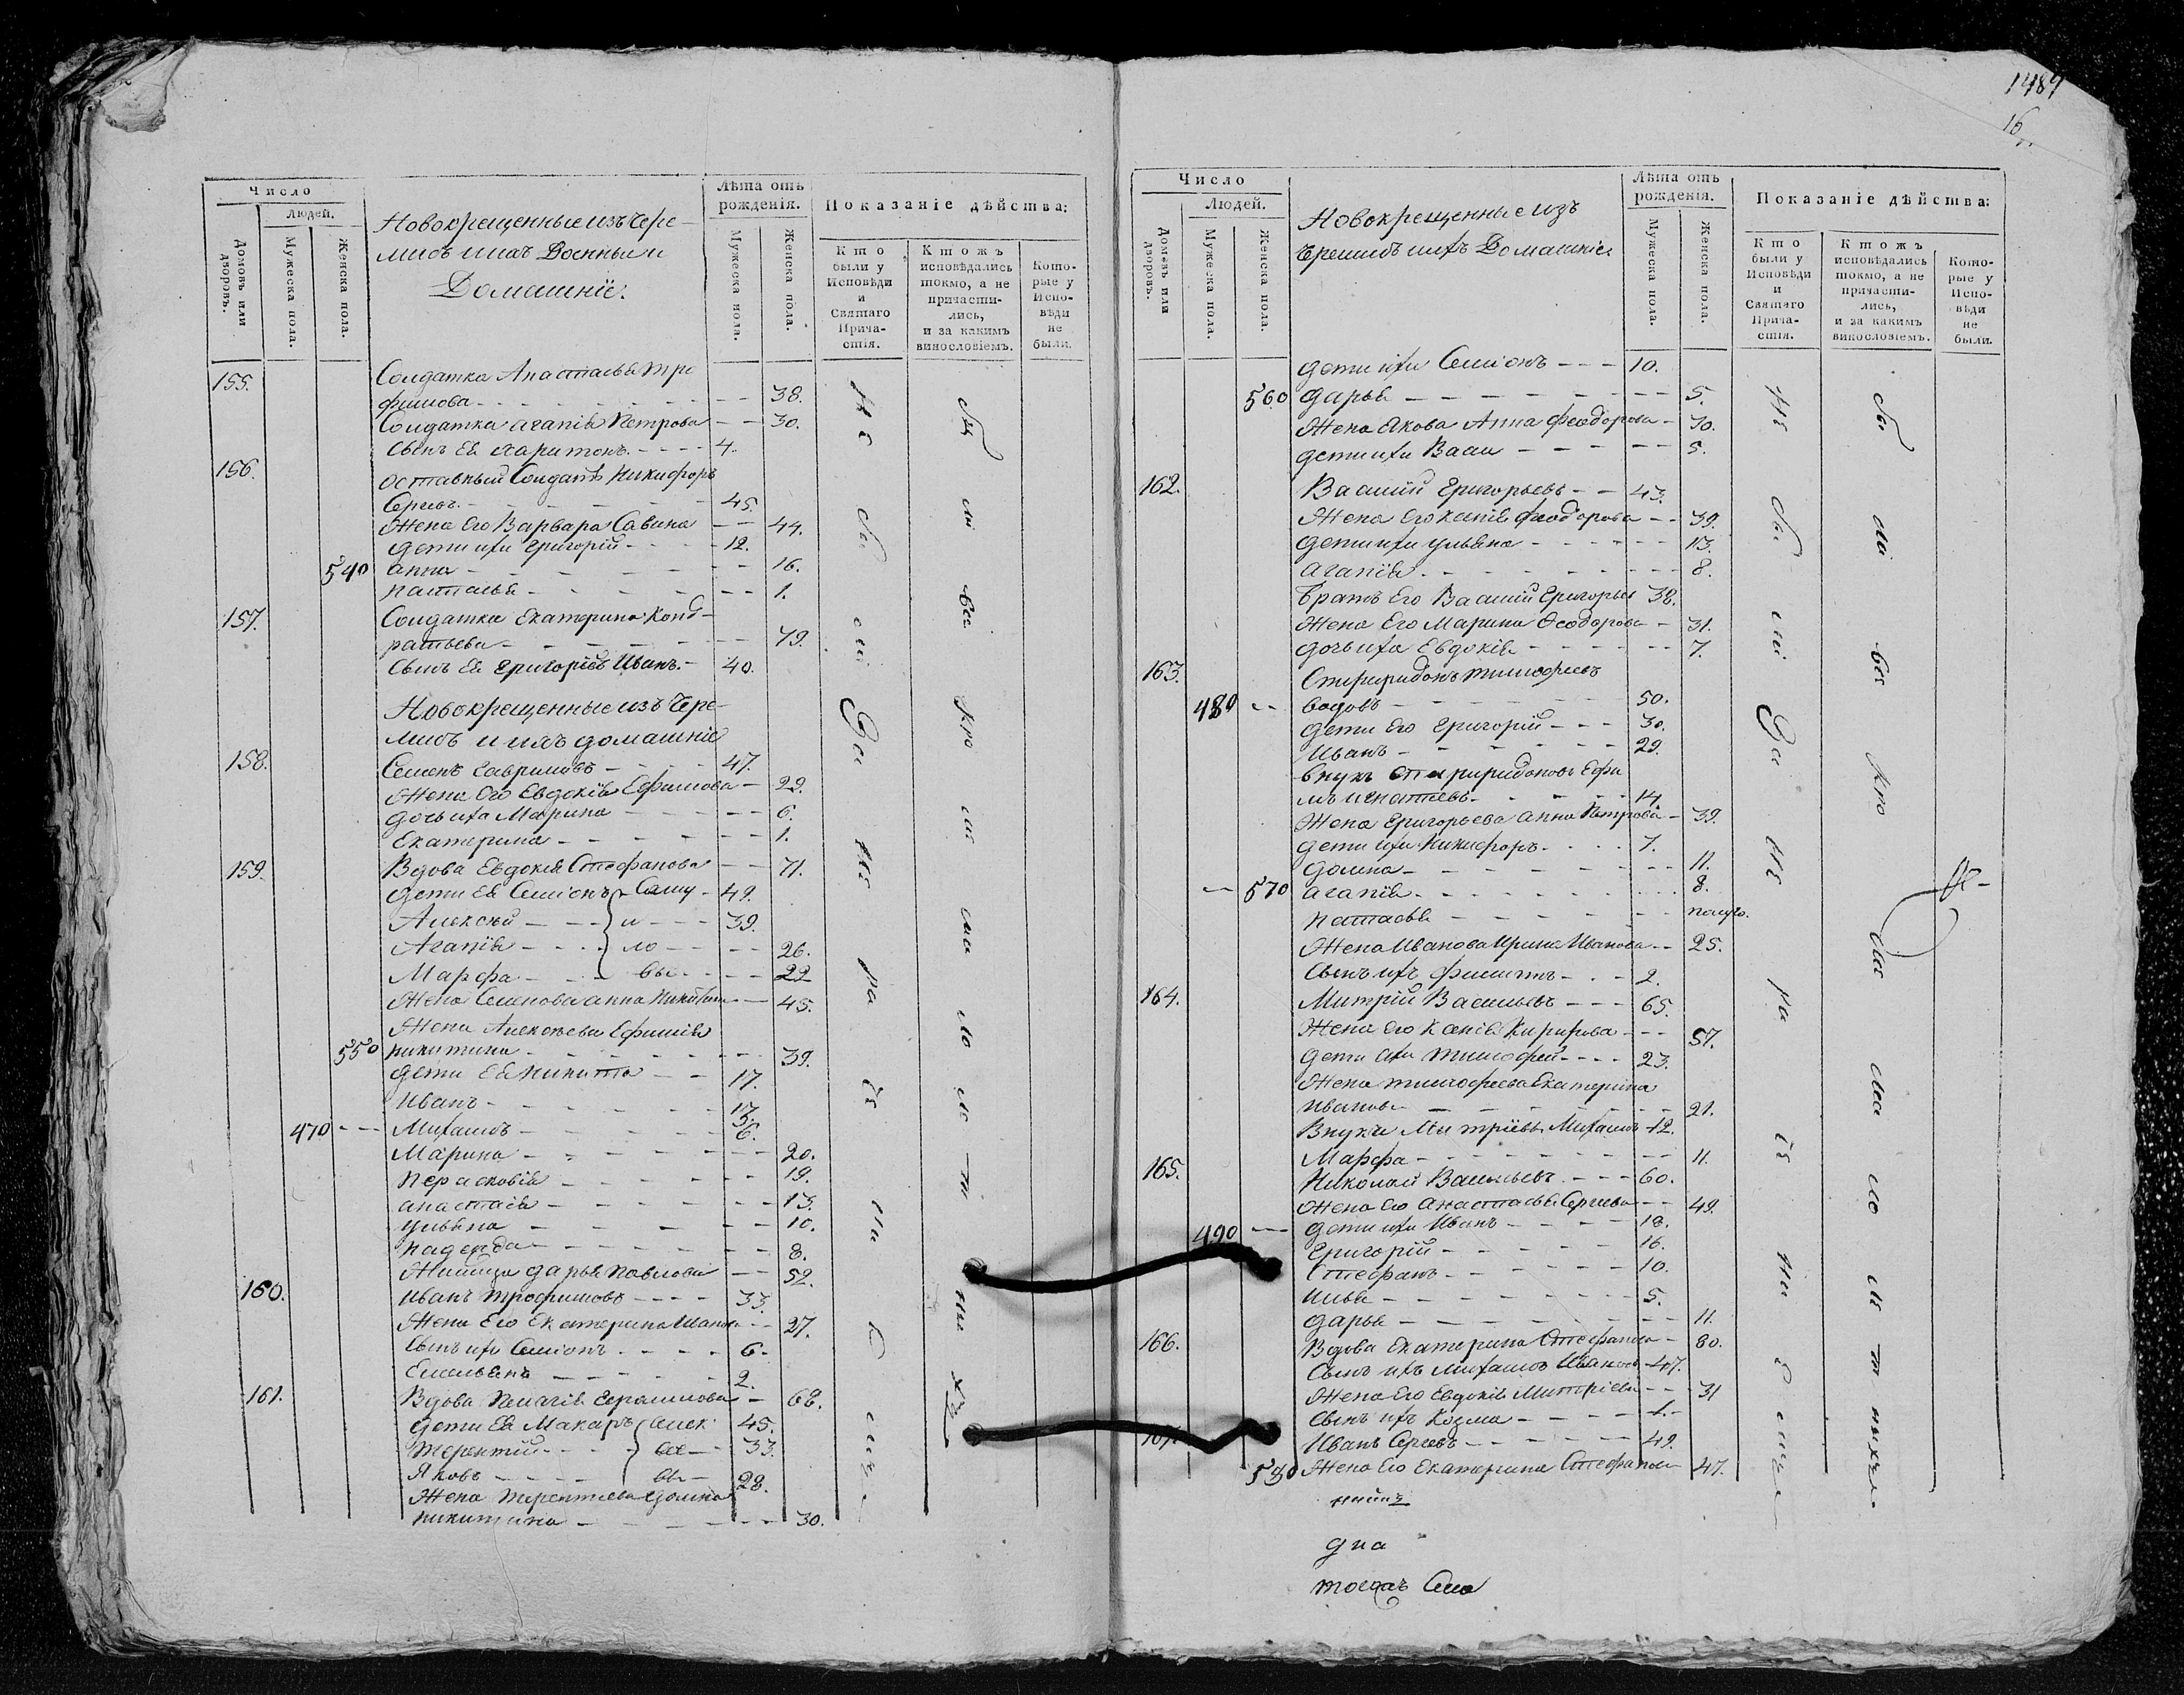 Число
Людей.
Домовъ или дворовъ.
Мужеска пола.
Женска пола.
Новокрещенные изъ Чере-
мисъ и ихъ Военныи и
Домашніе.
Лѣта отъ рожденія.
Мужеска пола.
Женска пола.
Показаніе дѣйства:
Кто были у Исповѣди и Святаго Прича-стія.
Ктожъ исповѣдались токмо, а не причасти-лись, и за какимъ винословіемъ.
Кото-рые у Испо-вѣди не были.
155. Солдатка Анастасья Тро
фимова - - - 38.
Солдатка Агапія Петрова - - 30.
Сынъ Ея Харитонъ - - - 4.
156. Оставный Солдатъ Никифоръ
Сергеевъ - - - 45.
Жена Его Варвара Савина - - 44.
Дети ихъ Григорій - - - 12.
540 Анна - - - 16.
Наталья - - - 1.
157. Солдатка Екатерина Конд-
ратьева - - - 79.
Сынъ Ея Григорій Иванъ - 40.
Новокрещенные изъ Чере-
мисъ и ихъ домашніе
158. Семенъ Гавриловъ - - - 47.
Жена Его Евдокія Ефимова - 29.
Дочь ихъ Марина - - - 6.
Екатерина - - - 1.
159. Вдова Евдокія Стефанова - - 71.
Дети Ея Семіонъ Саму - 49.
Алексей - - - и - - 39.
Агапія - - - ло - - 26.
Марфа - - - вы - - 22
Жена Семенова Анна Никитина - 45.
Жена Алексеева Ефимія
550 Никитина - - - 39.
Дети Ея Никита - - 17.
Иванъ - - - 13.
470 - - Михаилъ - - - 6.
Марина - - - 20.
Парасковія - - - 19.
Анастасія - - - 13.
Ульяна - - - 10.
Надежда - - - 8.
Жилица Дарья Павлова - - 52.
160. Иванъ Трофимовъ - - - 33.
Жена Его Екатерина Иванова - - 27.
Сынъ ихъ Семіонъ - - - 6.
Емельянъ - - - 2.
161. Вдова Пелагія Герасимова - 68.
Дети Ея Макаръ Алек 45.
Терентій - - - се - 33.
Яковъ - - - вы - 28.
Жена Терентіева Домна
Никитина - - - 30.
1489
16
Число
Людей.
Домовъ или дворовъ.
Мужеска пола.
Женска пола.
Новокрещенные изъ
Черемисъ ихъ Домашніе
Лѣта отъ рожденія.
Мужеска пола.
Женска пола.
Показаніе дѣйства:
Кто были у Исповѣди и Святаго Прича-стія.
Ктожъ исповѣдались токмо, а не причасти-лись, и за какимъ винословіемъ.
Кото-рые у Испо-вѣди не были.
Дети ихъ Семіонъ - - - 10.
560 Дарья - - - 5.
Жена Якова Анна Феодорова - 30.
Дети ихъ - - - 5.
162. Василій Григорьевъ - - 43.
Жена Его Ксенія Феодорова - - 39.
Дети ихъ Ульяна - - - 13.
Агапія - - - 8.
Братъ Его Василій Григорьев 38.
Жена Его Марина Феодорова - 31.
Дочь ихъ Евдокія - - - 7.
163. Спиридонъ Тимофеевъ
480 - - вдовъ - - - 50.
Дети Его Григорій - - - 30.
Иванъ - - - 29.
Внукъ Спиридоновъ Ефи
мъ Игнатіевъ - - - 14.
Жена Григорьева Анна Петрова - 39.
Дети ихъ Никифоръ - - - 7.
Домна - - - 11.
- - 570 Агапія - - - 8.
Настасья - - - полуго.
Жена Иванова Ирина Иванова - - 25.
Сынъ ихъ Филиппъ - - - 2.
164. Митрій Васильевъ - - - 65.
Жена Его Ксенія Кирилова - - 57.
Дети ихъ Тимофей - - - 23.
Жена Тимофеева Екатерина
Иванова - - - 21.
Внуки Митріевы Михаилъ - 12.
Марфа - - - 11.
165. Николай Васильевъ - - - 60.
Жена Его Анастасья Сергеева - - 49.
490 - - Дети ихъ Иванъ - - - 18.
Григорій - - - 16.
Стефанъ - - - 10.
Илья - - - 5.
Дарья - - - 11.
166. Вдова Екатерина Стефанова - 80.
Сынъ ихъ Михаилъ Ивановъ - 47.
Жена Его Евдокія Митріева - - 31
Сынъ ихъ Козма - - - 1.
167. Иванъ Сергеевъ - - - 49.
580 Жена Его Екатерина Стефанова 47.